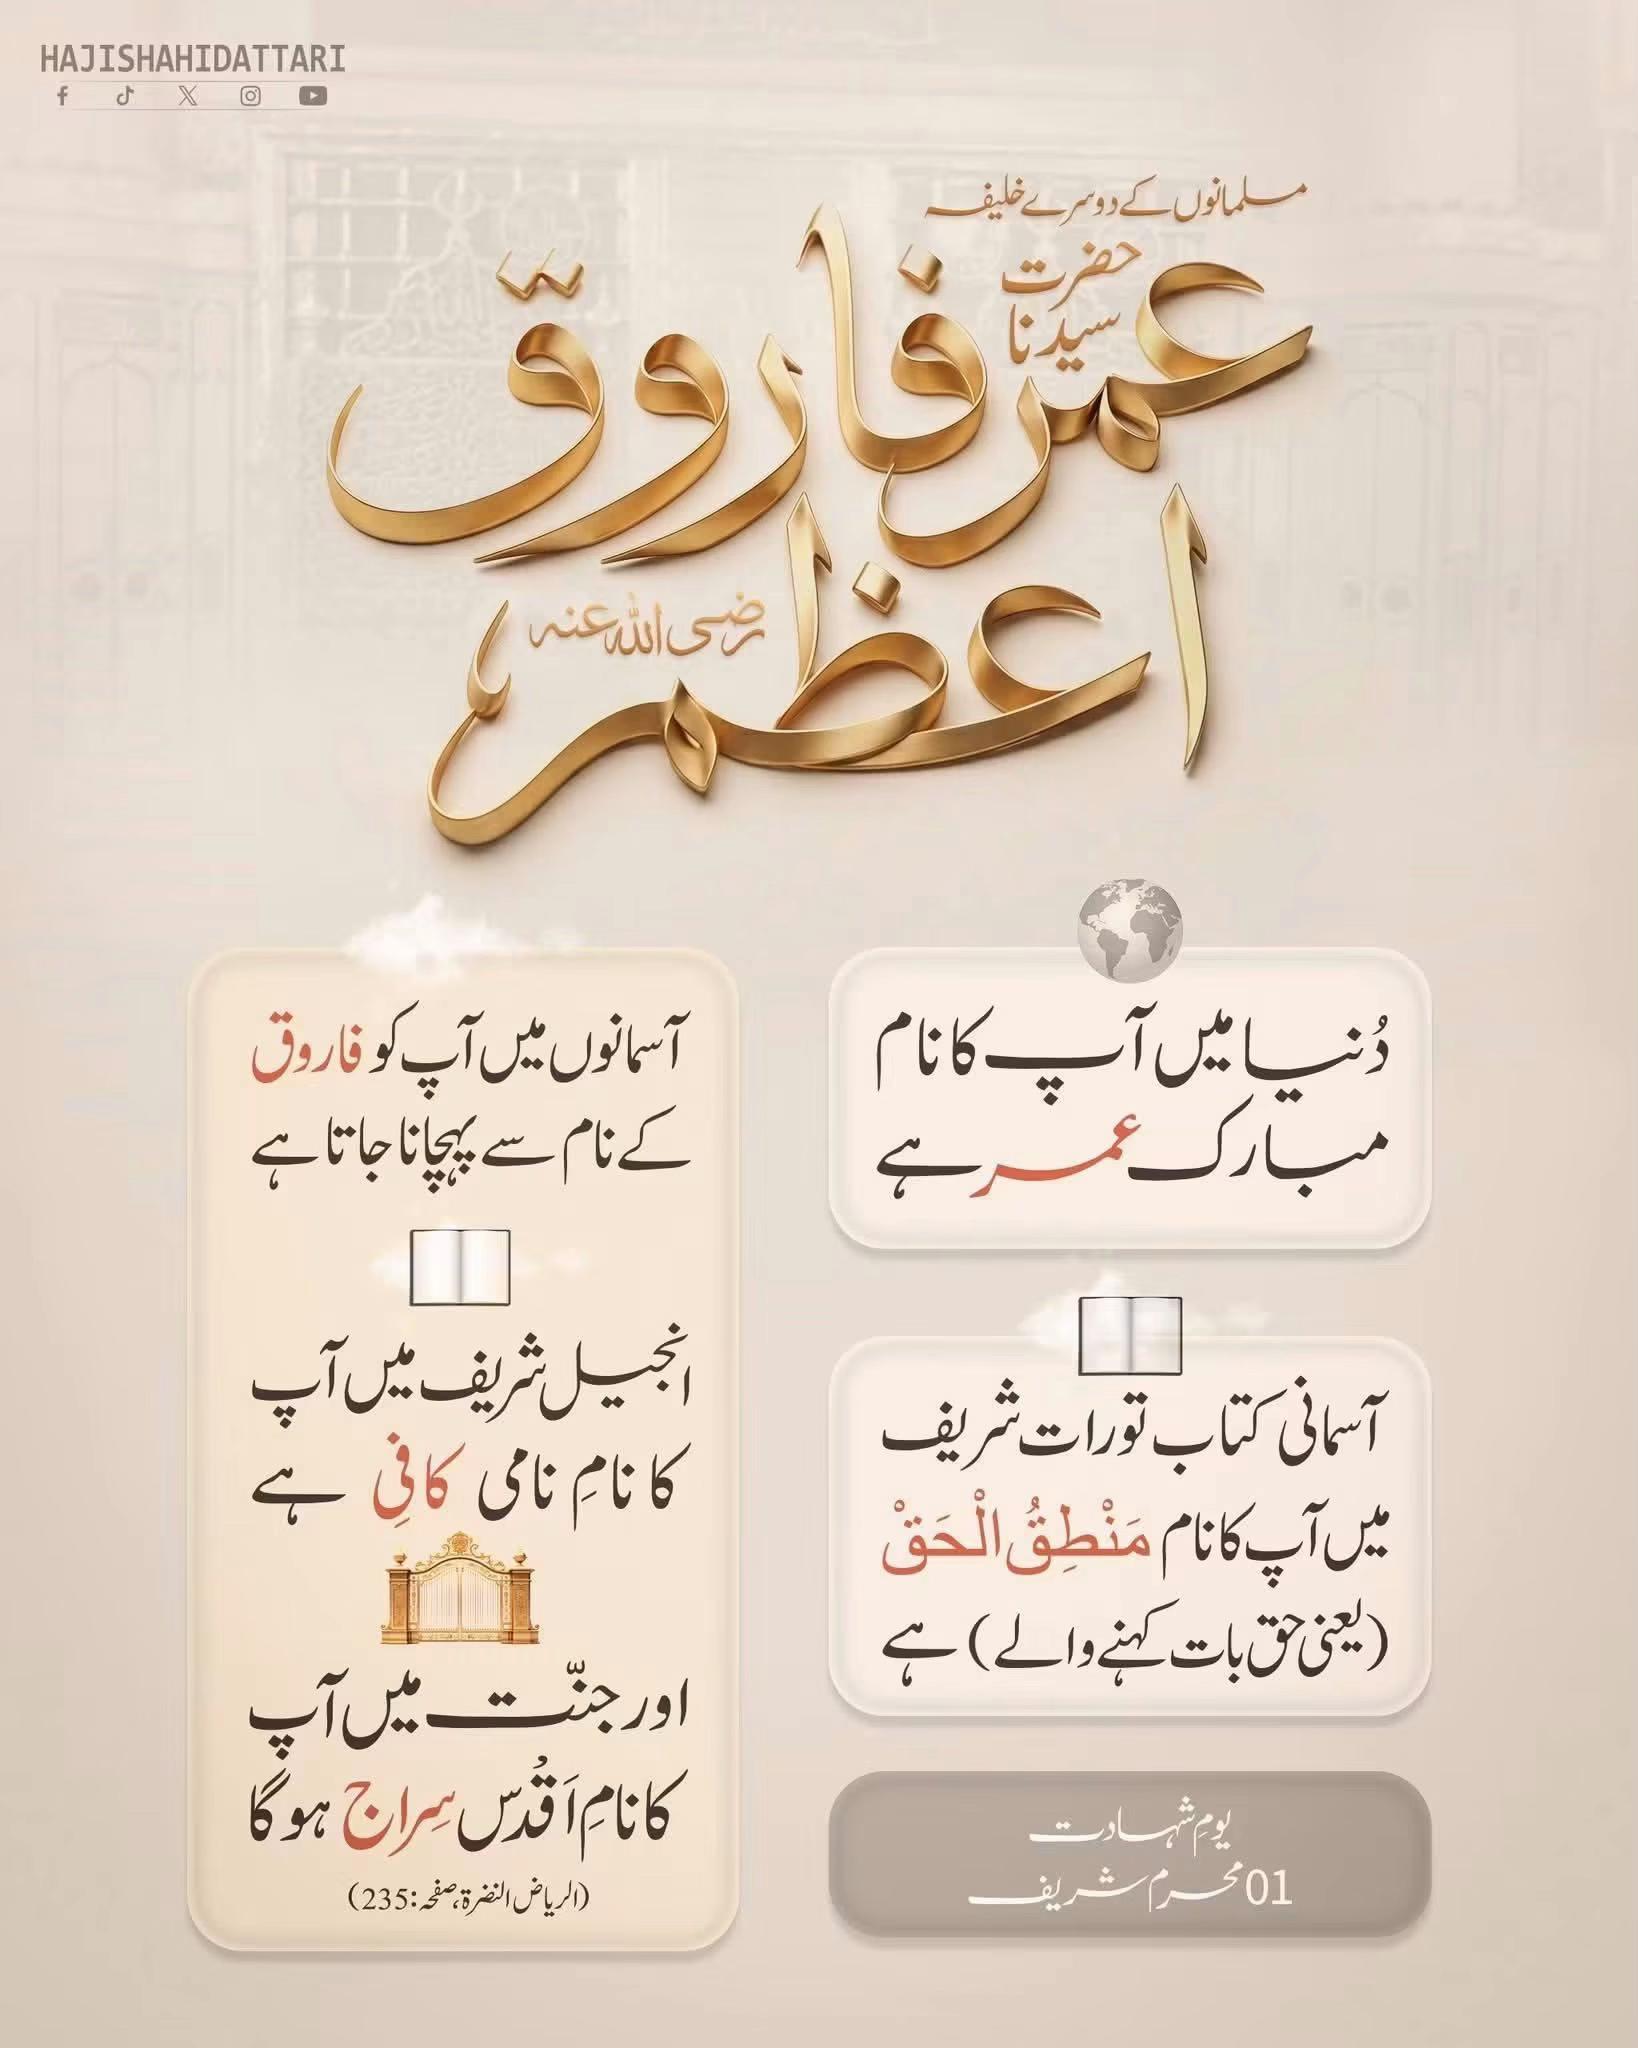 HAJISHAHIDATTARI
مسلمانوں کے دوسرے خلیفہ
حضرت
سیدنا
عمر فاروق
اعظم
رضی اللہ عنہ
دُنیا میں آپ کا نام
مبارک عمر ہے
آسمانی کتاب تورات شریف
میں آپ کا نام مَنْطِقُ الْحَقْ
(یعنی حق بات کہنے والے) ہے
یومِ شہادت
01 محرم شریف
آسمانوں میں آپ کو فاروق
کے نام سے پہچانا جاتا ہے
انجیل شریف میں آپ
کا نامِ نامی کافِی ہے
اور جنّت میں آپ
کا نامِ اَقْدُس سِراج ہوگا
(الریاض النضرۃ، صفحہ: 235)